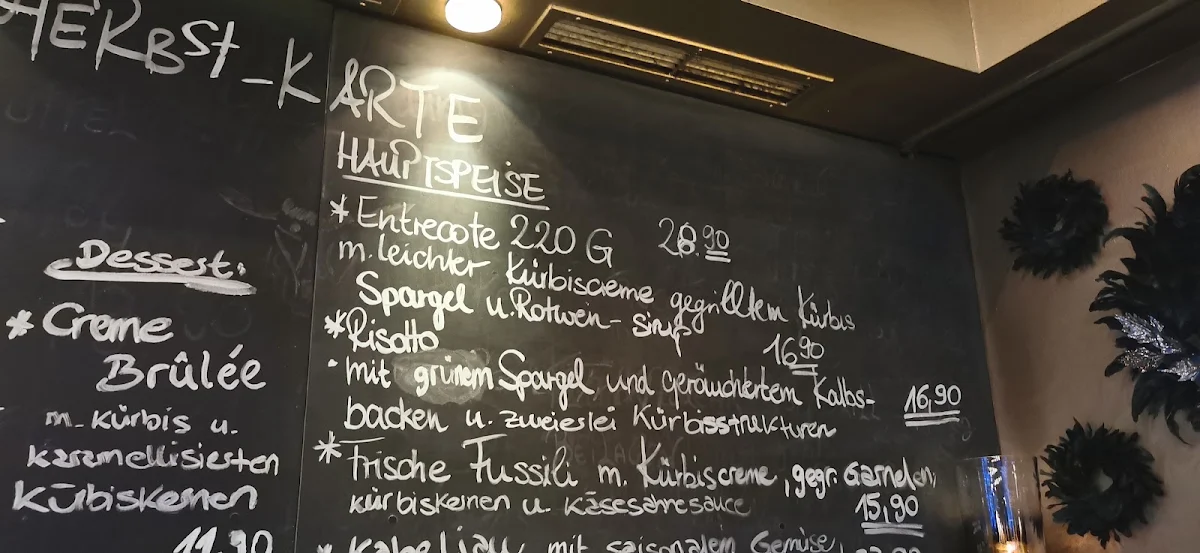 HERBST-KARTE
Dessert:
* Creme
Brûlée
m. Kürbis u.
karamellisierten
Kürbiskernen
11,90
HAUPTSPEISE
* Entrecote 220 G 28.90
m. leichter Kürbiscreme gegrilltem Kürbis
Spargel u. Rotwein-sirup
* Risotto 16,90
· mit grünem Spargel und geräuchertem Kalbs-
backen u. zweierlei Kürbisstrukturen 16,90
* Frische Fussili m. Kürbiscreme, gegr. Garnelen,
kürbiskernen u. Käsesahnesauce 15,90
* Kabeljau mit saisonalem Gemüse,